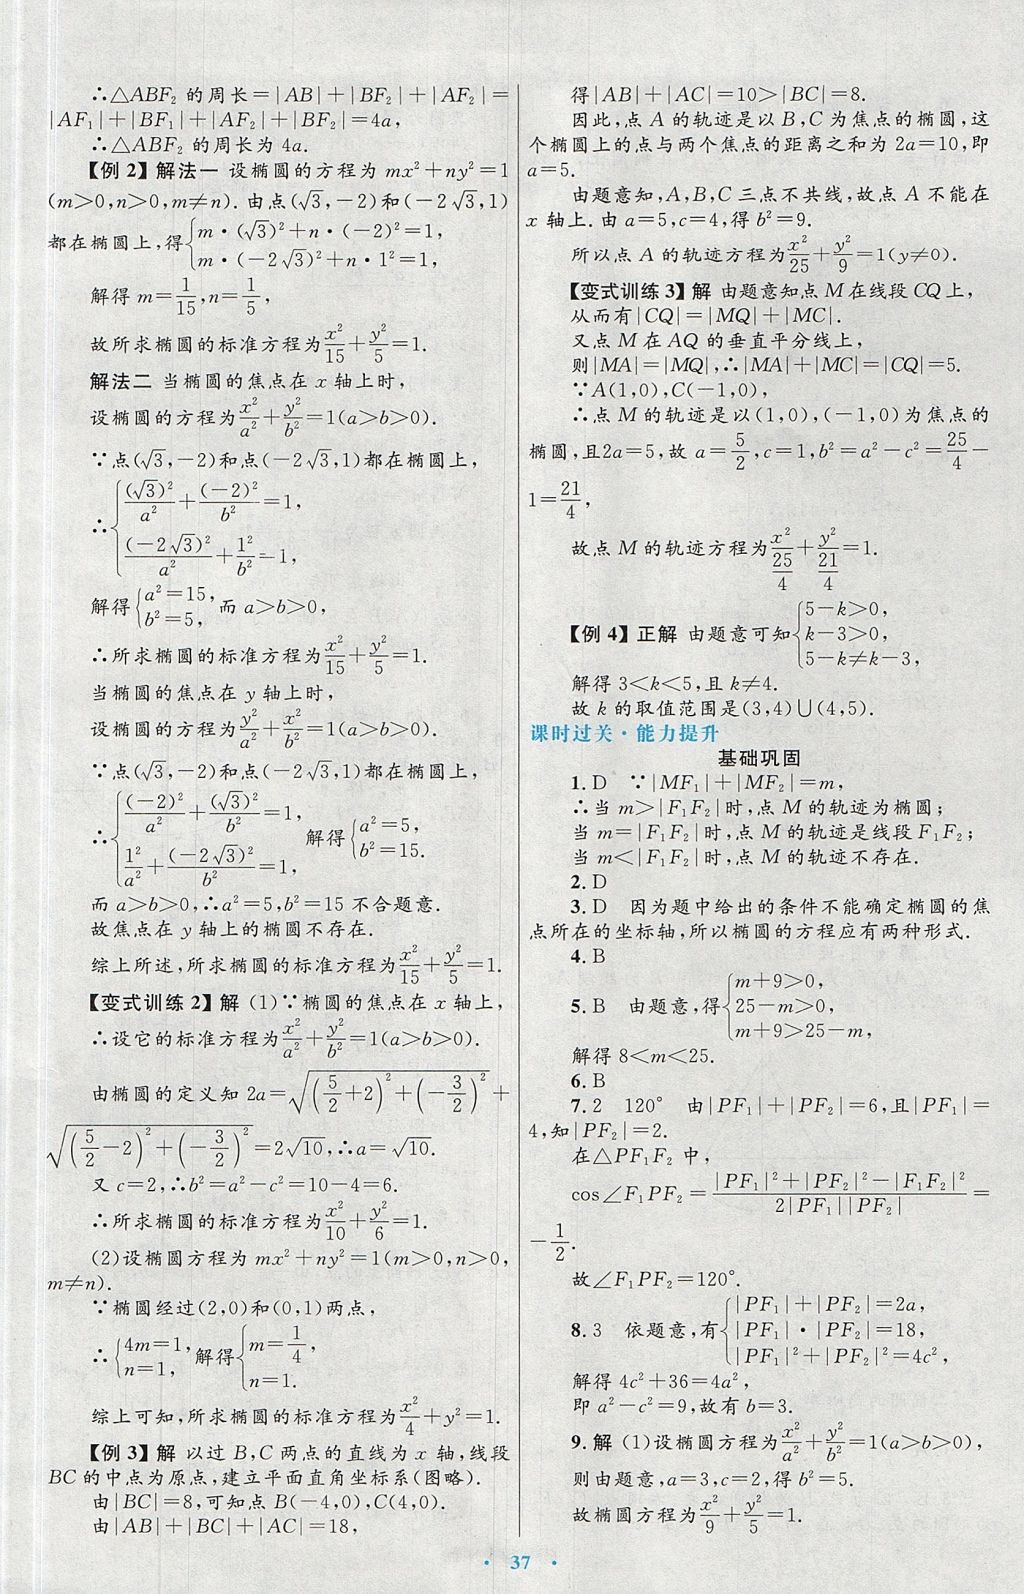 ∴△ABF₂ 的周长=|AB|+|BF₂|+|AF₂|=
|AF₁|+|BF₁|+|AF₂|+|BF₂|=4a,
∴△ABF₂ 的周长为 4a.
【例 2】解法一 设椭圆的方程为 mx²+ny²=1
(m>0,n>0,m≠n).由点(√3,-2)和(-2√3,1)
都在椭圆上,得{m·(√3)²+n·(-2)²=1,
m·(-2√3)²+n·1²=1,
解得 m=1/15,n=1/5,
故所求椭圆的标准方程为x²/15+y²/5=1.
解法二 当椭圆的焦点在 x 轴上时,
设椭圆的方程为x²/a²+y²/b²=1(a>b>0).
∵点(√3,-2)和点(-2√3,1)都在椭圆上,
∴{(√3)²/a²+(-2)²/b²=1,
(-2√3)²/a²+1²/b²=1,
解得{a²=15,
b²=5, 而 a>b>0,
∴所求椭圆的标准方程为x²/15+y²/5=1.
当椭圆的焦点在 y 轴上时,
设椭圆的方程为y²/a²+x²/b²=1(a>b>0).
∵点(√3,-2)和点(-2√3,1)都在椭圆上,
∴{(-2)²/a²+(√3)²/b²=1,
1²/a²+(-2√3)²/b²=1, 解得{a²=5,
b²=15.
而 a>b>0,∴a²=5,b²=15 不合题意.
故焦点在 y 轴上的椭圆不存在.
综上所述,所求椭圆的标准方程为x²/15+y²/5=1.
【变式训练 2】解 (1)∵椭圆的焦点在 x 轴上,
∴设它的标准方程为x²/a²+y²/b²=1(a>b>0).
由椭圆的定义知 2a=√((5/2+2)²+(-3/2)²)+
√((5/2-2)²+(-3/2)²)=2√10,∴a=√10.
又 c=2,∴b²=a²-c²=10-4=6.
∴所求椭圆的标准方程为x²/10+y²/6=1.
(2)设椭圆方程为 mx²+ny²=1(m>0,n>0,
m≠n).
∵椭圆经过(2,0)和(0,1)两点,
∴{4m=1,
n=1, 解得{m=1/4,
n=1.
综上可知,所求椭圆的标准方程为x²/4+y²=1.
【例 3】解 以过 B,C 两点的直线为 x 轴,线段
BC 的中点为原点,建立平面直角坐标系(图略).
由|BC|=8,可知点 B(-4,0),C(4,0).
由|AB|+|BC|+|AC|=18,
得|AB|+|AC|=10>|BC|=8.
因此,点 A 的轨迹是以 B,C 为焦点的椭圆,这
个椭圆上的点与两个焦点的距离之和为 2a=10,即
a=5.
由题意知,A,B,C 三点不共线,故点 A 不能在
x 轴上.由 a=5,c=4,得 b²=9.
所以点 A 的轨迹方程为x²/25+y²/9=1(y≠0).
【变式训练 3】解 由题意知点 M 在线段 CQ 上,
从而有|CQ|=|MQ|+|MC|.
又点 M 在 AQ 的垂直平分线上,
则|MA|=|MQ|,∴|MA|+|MC|=|CQ|=5.
∵A(1,0),C(-1,0),
∴点 M 的轨迹是以(1,0),(-1,0)为焦点的
椭圆,且2a=5,故 a=5/2,c=1,b²=a²-c²=25/4-
1=21/4,
故点 M 的轨迹方程为x²/(25/4)+y²/(21/4)=1.
【例 4】正解 由题意可知{5-k>0,
k-3>0,
5-k≠k-3,
解得 3<k<5,且 k≠4.
故 k 的取值范围是(3,4)∪(4,5).
课时过关·能力提升
基础巩固
1.D ∵|MF₁|+|MF₂|=m,
∴当 m>|F₁F₂|时,点 M 的轨迹为椭圆;
当 m=|F₁F₂|时,点 M 的轨迹是线段 F₁F₂;
当 m<|F₁F₂|时,点 M 的轨迹不存在.
2.D
3.D 因为题中给出的条件不能确定椭圆的焦
点所在的坐标轴,所以椭圆的方程应有两种形式.
4.B
5.B 由题意,得{m+9>0,
25-m>0,
m+9>25-m,
解得 8<m<25.
6.B
7.2 120° 由|PF₁|+|PF₂|=6,且|PF₁|=
4,知|PF₂|=2.
在△PF₁F₂ 中,
cos∠F₁PF₂=(|PF₁|²+|PF₂|²-|F₁F₂|²)/(2|PF₁||PF₂|)=
-1/2.
故∠F₁PF₂=120°.
8.3 依题意,有{|PF₁|+|PF₂|=2a,
|PF₁|·|PF₂|=18,
|PF₁|²+|PF₂|²=4c²,
解得 4c²+36=4a²,
即 a²-c²=9,故有 b=3.
9.解 (1)设椭圆方程为x²/a²+y²/b²=1(a>b>0),
则由题意,a=3,c=2,得 b²=5.
故椭圆方程为x²/9+y²/5=1.
· 37 ·